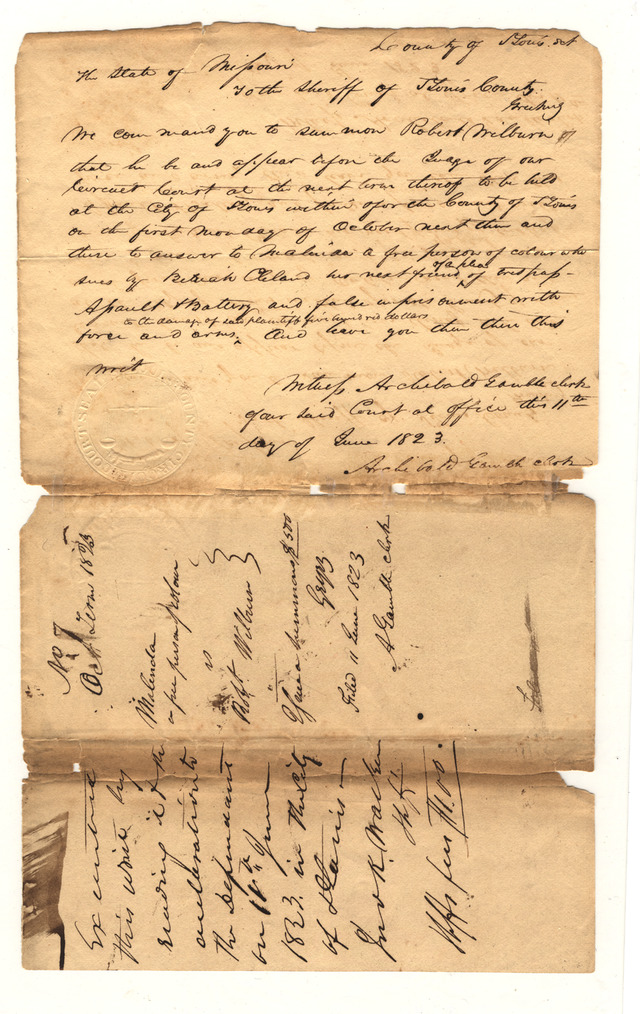 County of St Louis sct
The State of Missouri
To the Sheriff of St Louis County
Greeting
We command you to summon Robert Wilburn
that he be and appear before the Judge of our
Circuit Court at the next term thereof to be held
at the City of St Louis within & for the County of St Louis
on the first monday of October next then and
there to answer to Malinda a free person of colour who
sues by Beriah Cleland her next friend of a plea of trespass
Assault & Battery and false imprisonment with
force and arms to the damage of said plaintiff five hundred dollars And have you then there this
writ
Witness Archibald Gamble clerk
of our said Court at office this 11th
day of June 1823.
Archibald Gamble clerk
No 7
Oct Term 1823
Milinda
a free person of colour
vs
Robt Wilburn
Issue a summons $500
Filed 11 June 1823
A Gamble clerk
Executed
this writ by
reading it & the
declaration to
the Defendant
on 14th June
1823 in the City
of St Louis
Jno K. Walker
Shff
Shffs fees $1.00